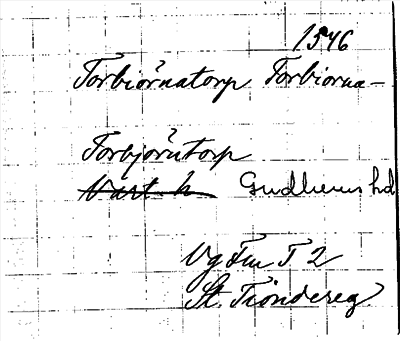 1546
Torbiörnatorp Torbiorna-
Torbjörntorp
Vart h Gudhems hd
Vg Fm T 2
St. Tiondereg